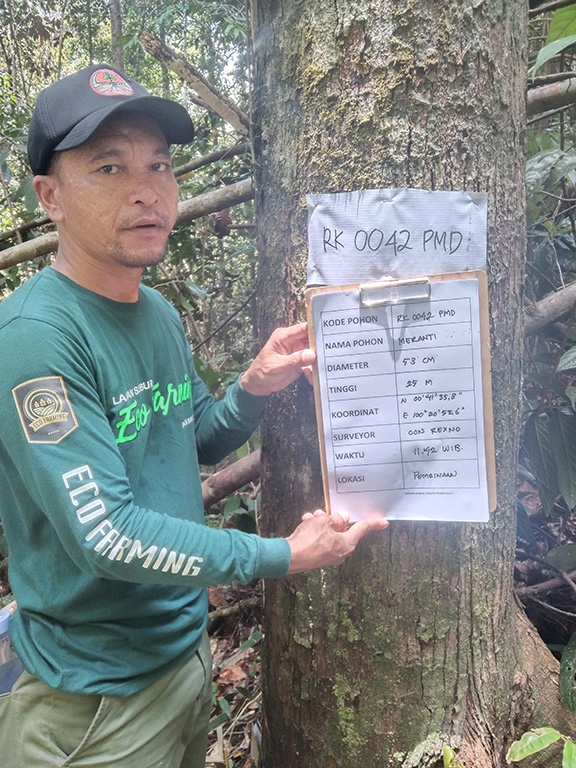 RK 0042 PMD
KODE POHON RK 0042 PMD
NAMA POHON MERANTI
DIAMETER 53 CM
TINGGI 25 M
KOORDINAT N 00°41'35,8"
E 100°20'53,6"
SURVEYOR OON REXNO
WAKTU 11.42 WIB.
LOKASI PEMBINAAN
ECO FARMING
ECO FARMING